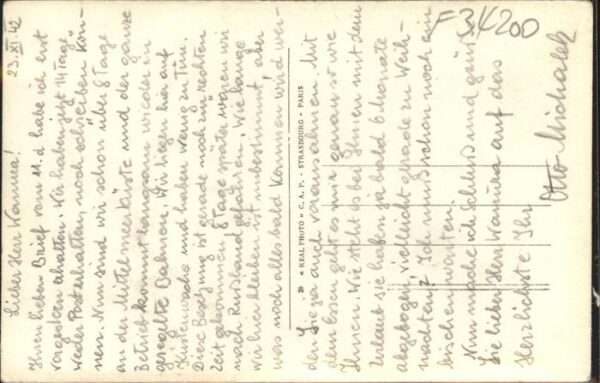 23.XI.42
Lieber Herr Wanina!
Ihren lieben Brief vom 11.d. habe ich erst
vorgestern erhalten. Wir haben jetzt 14 Tage
weder Post erhalten, noch schreiben kön-
nen. Nun sind wir schon über 8 Tage
an der Mittelmeerküste und der ganze
Betrieb kommt langsam wieder in
geregelte Bahnen. Wir liegen hier auf
Küstenwache und haben wenig zu Tun.
Diese Besetzung ist gerade noch zur rechten
Zeit gekommen, 8 Tage später wären wir
nach Rußland gefahren. Wie lange
wir hier bleiben ist unbestimmt, aber
was noch alles bald kommen wird wer-
den Sie ja auch vorausahnen. Mit
dem Essen geht es mir genau so wie
Ihnen. Wie steht es bei Ihnen mit dem
Urlaub Sie haben ja bald 6 Monate
abgebogen, vielleicht gerade zu Weih-
nachten? Ich muß schon noch ein
bischen warten.
Nun mache ich Schluß und grüße
Sie lieber Herr Wanina auf das
Herzlichste Ihr
Otto Michalek
F 34200
39 « REAL PHOTO » C. A. P. - STRASBOURG - PARIS